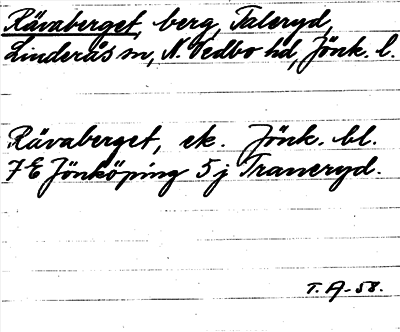 Rävaberget, berg, Taleryd,
Linderås sn, N. Vedbo hd, Jönk. l.
Rävaberget, ek. Jönk. bl.
7E Jönköping 5j Traneryd.
T. A. -58.